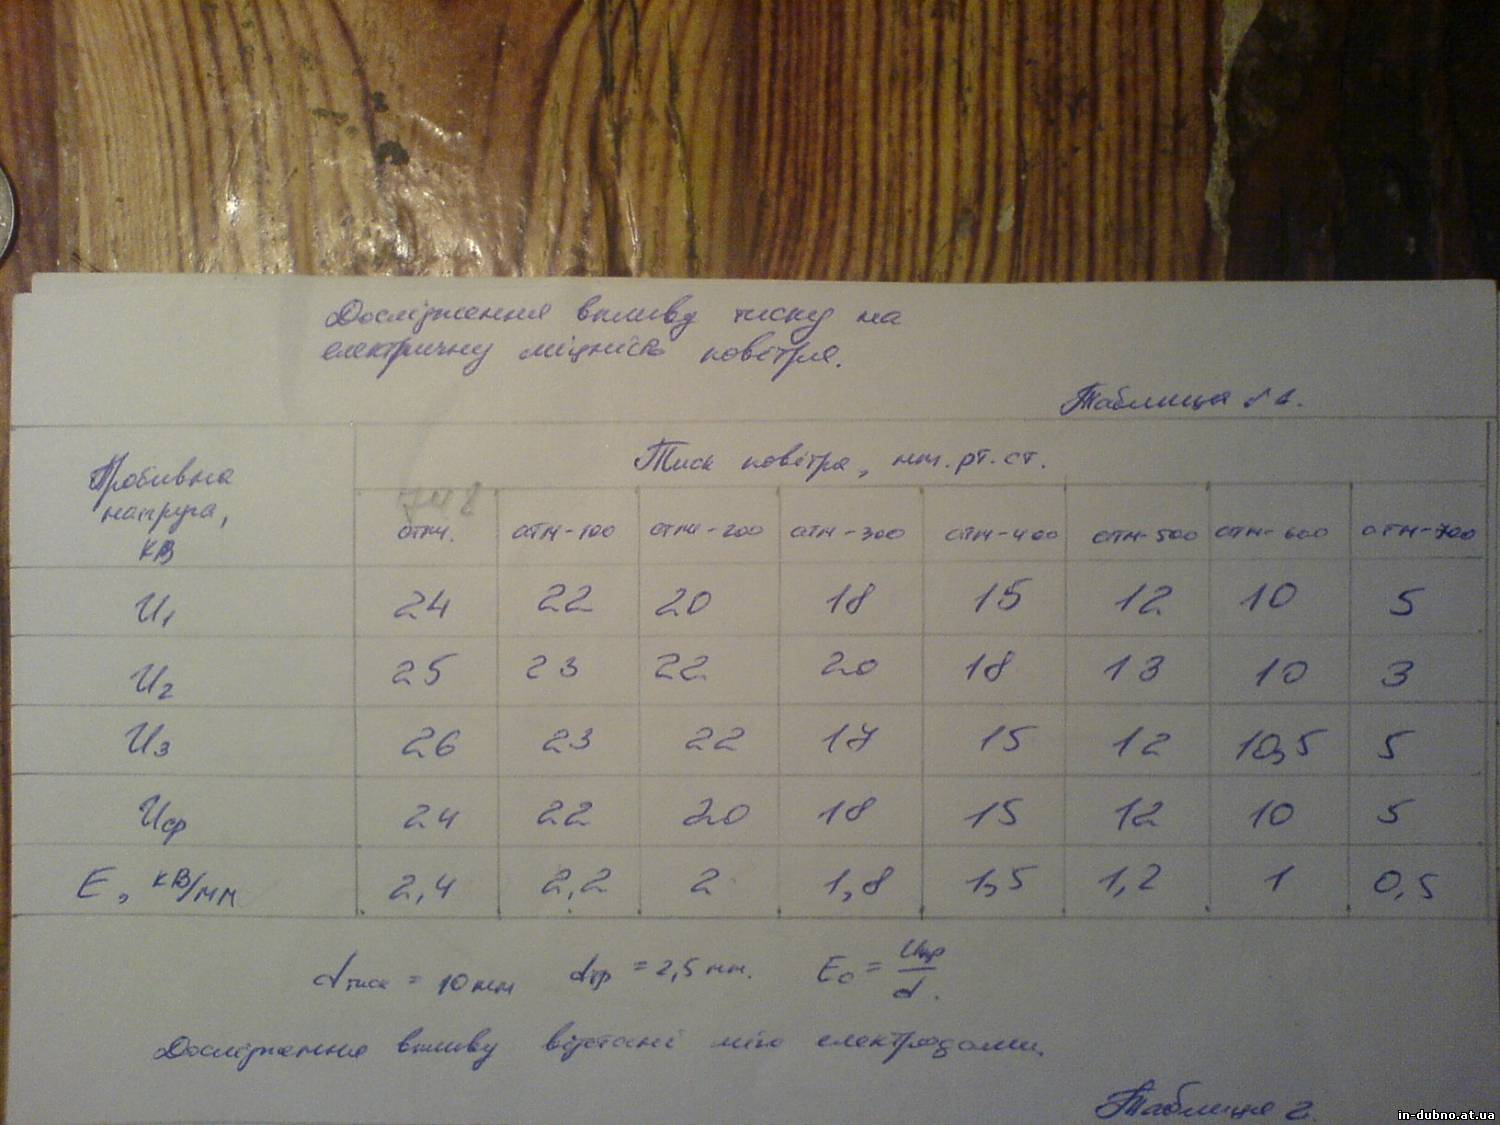 Дослідження впливу тиску на
електричну міцність повітря.
Таблиця №1.
Пробивна
напруга,
кВ
Тиск повітря, мм.рт.ст.
748
атм. атм-100 атм-200 атм-300 атм-400 атм-500 атм-600 атм-700
U1 24 22 20 18 15 12 10 5
U2 25 23 22 20 18 13 10 3
U3 26 23 22 17 15 12 10,5 5
Uср 24 22 20 18 15 12 10 5
E, кВ/мм 2,4 2,2 2 1,8 1,5 1,2 1 0,5
dтиск = 10мм dтр = 2,5 мм. E0 = Uпр/d.
Дослідження впливу відстані між електродами.
Таблиця 2.
in-dubno.at.ua